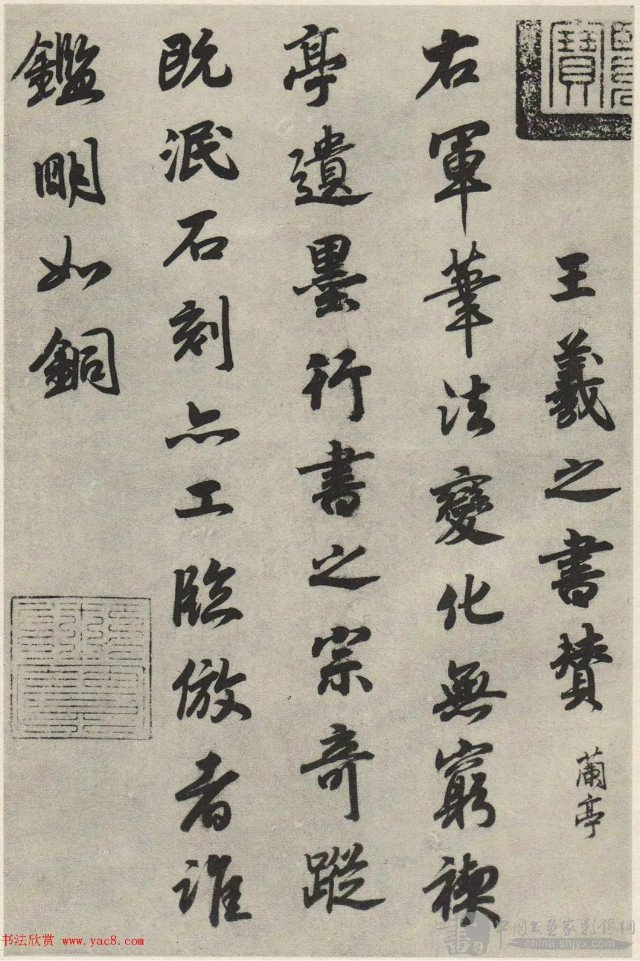 王羲之書贊 蘭亭
右軍筆法變化無窮禊
亭遺墨行書之宗奇蹤
既泯石刻亦工臨倣者誰
鑑明如銅
书法欣赏 www.yac8.com
中国书画家影像网
china-shjyx.com